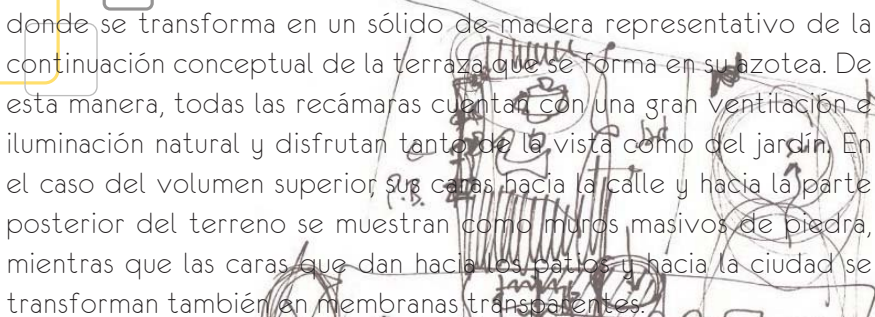 donde se transforma en un sólido de madera representativo de la
continuación conceptual de la terraza que se forma en su azotea. De
esta manera, todas las recámaras cuentan con una gran ventilación e
iluminación natural y disfrutan tanto de la vista como del jardín. En
el caso del volumen superior, sus caras hacia la calle y hacia la parte
P.B.
posterior del terreno se muestran como muros masivos de piedra,
mientras que las caras que dan hacia los patios y hacia la ciudad se
transforman también en membranas transparentes.